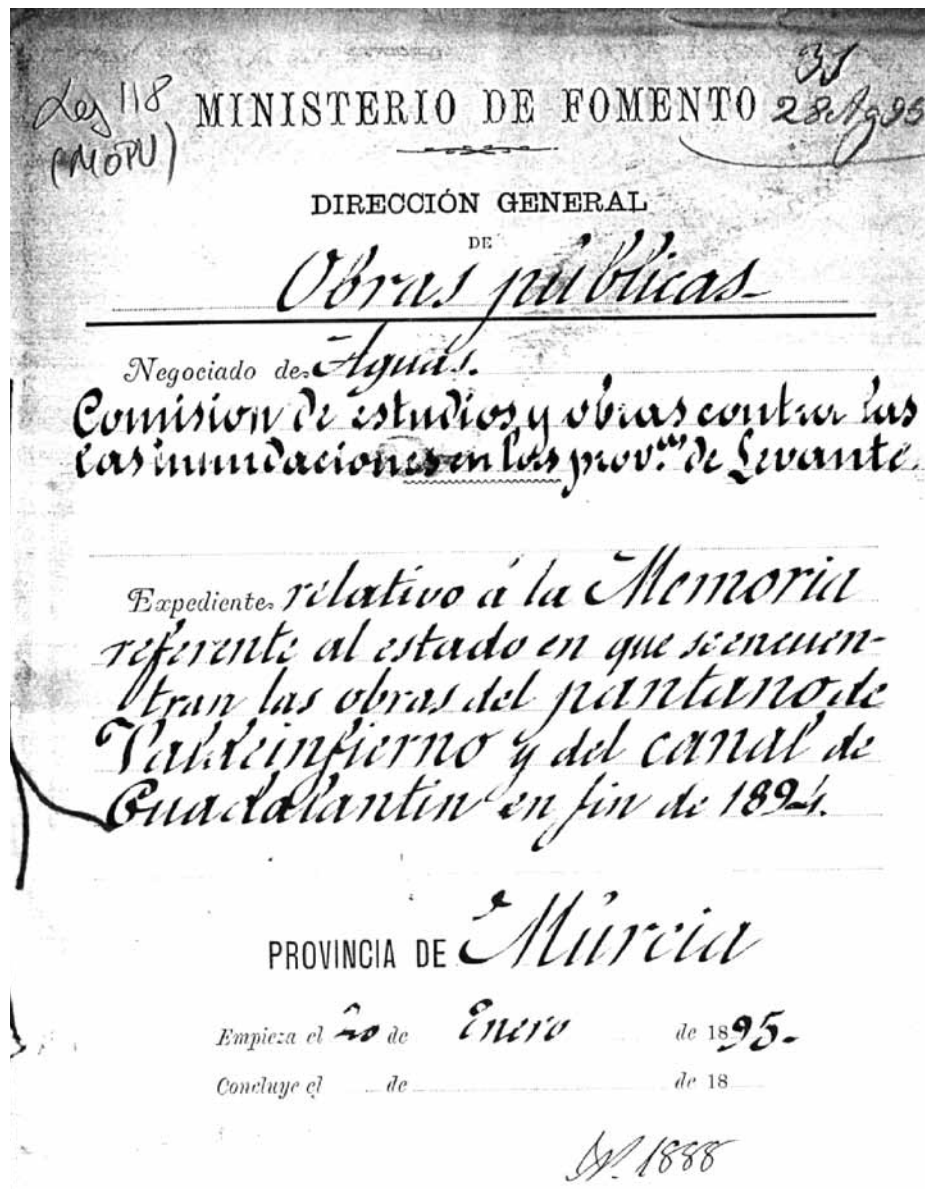 Leg 118
(MOPU)
31
28 Ag 95
MINISTERIO DE FOMENTO
DIRECCIÓN GENERAL
DE
Obras públicas
Negociado de Aguas.
Comision de estudios y obras contra las
las inundaciones en las prov.as de Levante.
Expediente relativo á la Memoria
referente al estado en que se encuen-
tran las obras del pantano de
Valdeinfierno y del canal de
Guadalantin en fin de 1894.
PROVINCIA DE Múrcia
Empieza el 20 de Enero de 1895.
Concluye el de de 18
1888